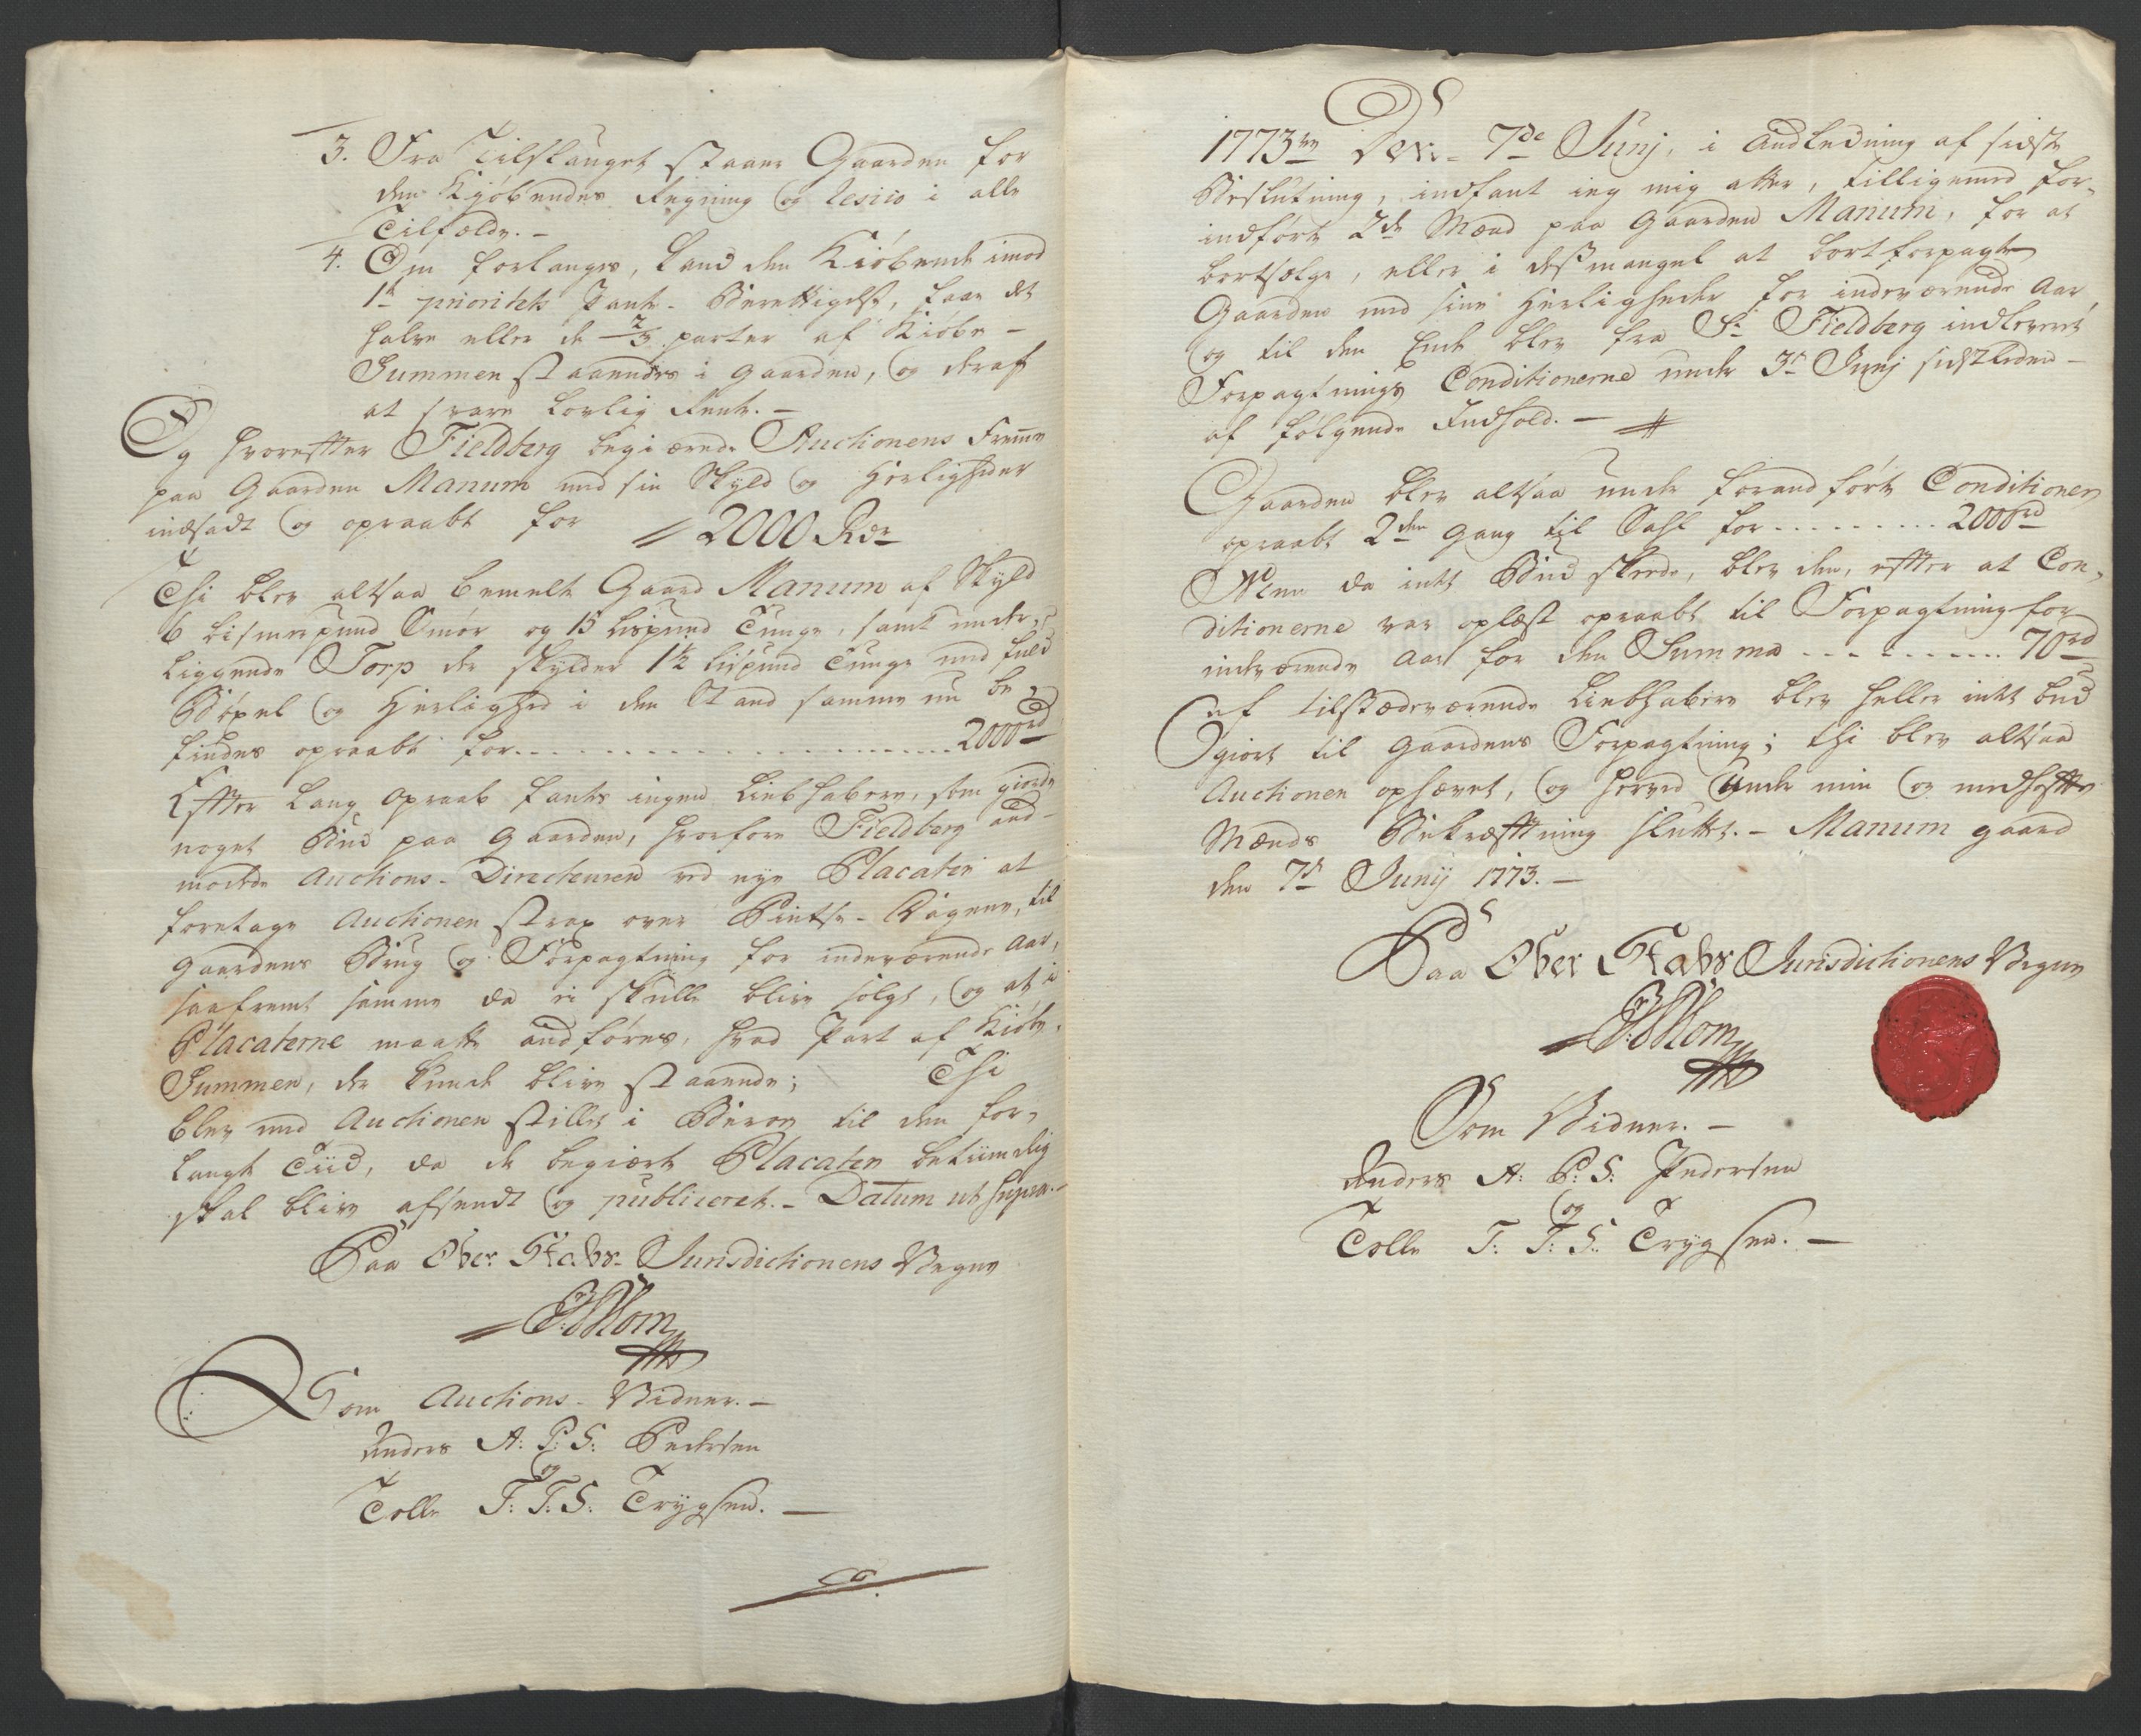 3. Fra Tilslauget staaer Gaarden for
den Kjøbendes Regning og resico i alle
Tilfælde. -
4. Om forlanges, kand den Kiøbende imod
1te prioritets Pant-Berettigelse, faae det
halve eller de 2/3 parter af Kiøbe-
Summen staaendes i Gaarden, og deraf
at svare Lovlig Rente. -
Og hvorefter Fieldberg begiærede Auctionens Fremme
paa Gaarden Manum med sin Skyld og Herligheder
indsadt og opraabt for // 2000 Rdr
Thi blev altsaa bemelte Gaard Manum af Skyld
6 bismerpund Smør og 15 Lispund Tunge, samt under-
liggende Torp der skylder 1½ lispund Tunge med fuld
Bøxel og Herlighed i den Stand samme nu be-
findes opraabt for . . . . . . . . . . 2000rd
Efter lang Opraab fantes ingen Liebhabere, som giorde
noget Bud paa Gaarden, hvorfore Fieldberg and-
modede Auctions-Directeuren ved nye Placater at
foretage Auctionen strax over Pintse-Dagene, til
Gaardens Brug og Forpagtning for indeværende Aar,
saafremt samme da ei skulle blive solgt, og at i
Placaterne maatte andføres, hvad Part af Kiøbe-
Summen, der kunde blive staaende; Thi
blev med Auctionen stillet i Beroe til den for-
langte Tiid, da de begiærte Placater betimelig
skal blive afsendt og publiceret. - Datum ut supra. -
Paa Ober Stabs-Jurisdictionens Vegne
Blom
Som Auctions-Vidner. -
Anders A: P: S: Pedersen
og
Tolle T: T: S: Trygsen. -
1773 Den 7de Junj, i Andledning af sidste
Beslutning, indfant ieg mig atter, tilligemed for-
indførte 2de Mænd paa Gaarden Manum, for at
bortsælge, eller i dessmangel at bortforpagte
Gaarden med sine Herligheder for indeværende Aar,
og til den Ende blev fra Sr Fieldberg indleveret
Forpagtnings Conditionerne under 3de Junj sidstleden -
af følgende Indhold. - #
Gaarden blev altsaa under forandførte Conditioner
opraabt 2den gang til Sahl for . . . . . . . . . 2000rd
Men da intet Bud skeede, blev den, efter at Con-
ditionerne var oplæst opraabt til Forpagtning for
indeværende Aar for den Summa . . . . . . . . . 70rd
af tilstædeværende Liebhabere blev heller intet bud
giort til Gaardens Forpagtning; thi blev altsaa
Auctionen ophævet, og herved under min og medhafte
Mænds Bekræftning sluttet. - Manum gaard
den 7de Junij 1773. -
Paa Ober Stabs Jurisdictionens Vegne
Blom
Som Vidner. -
Anders A: P: S: Pedersen
og
Tolle T: T: S: Trygsen. -